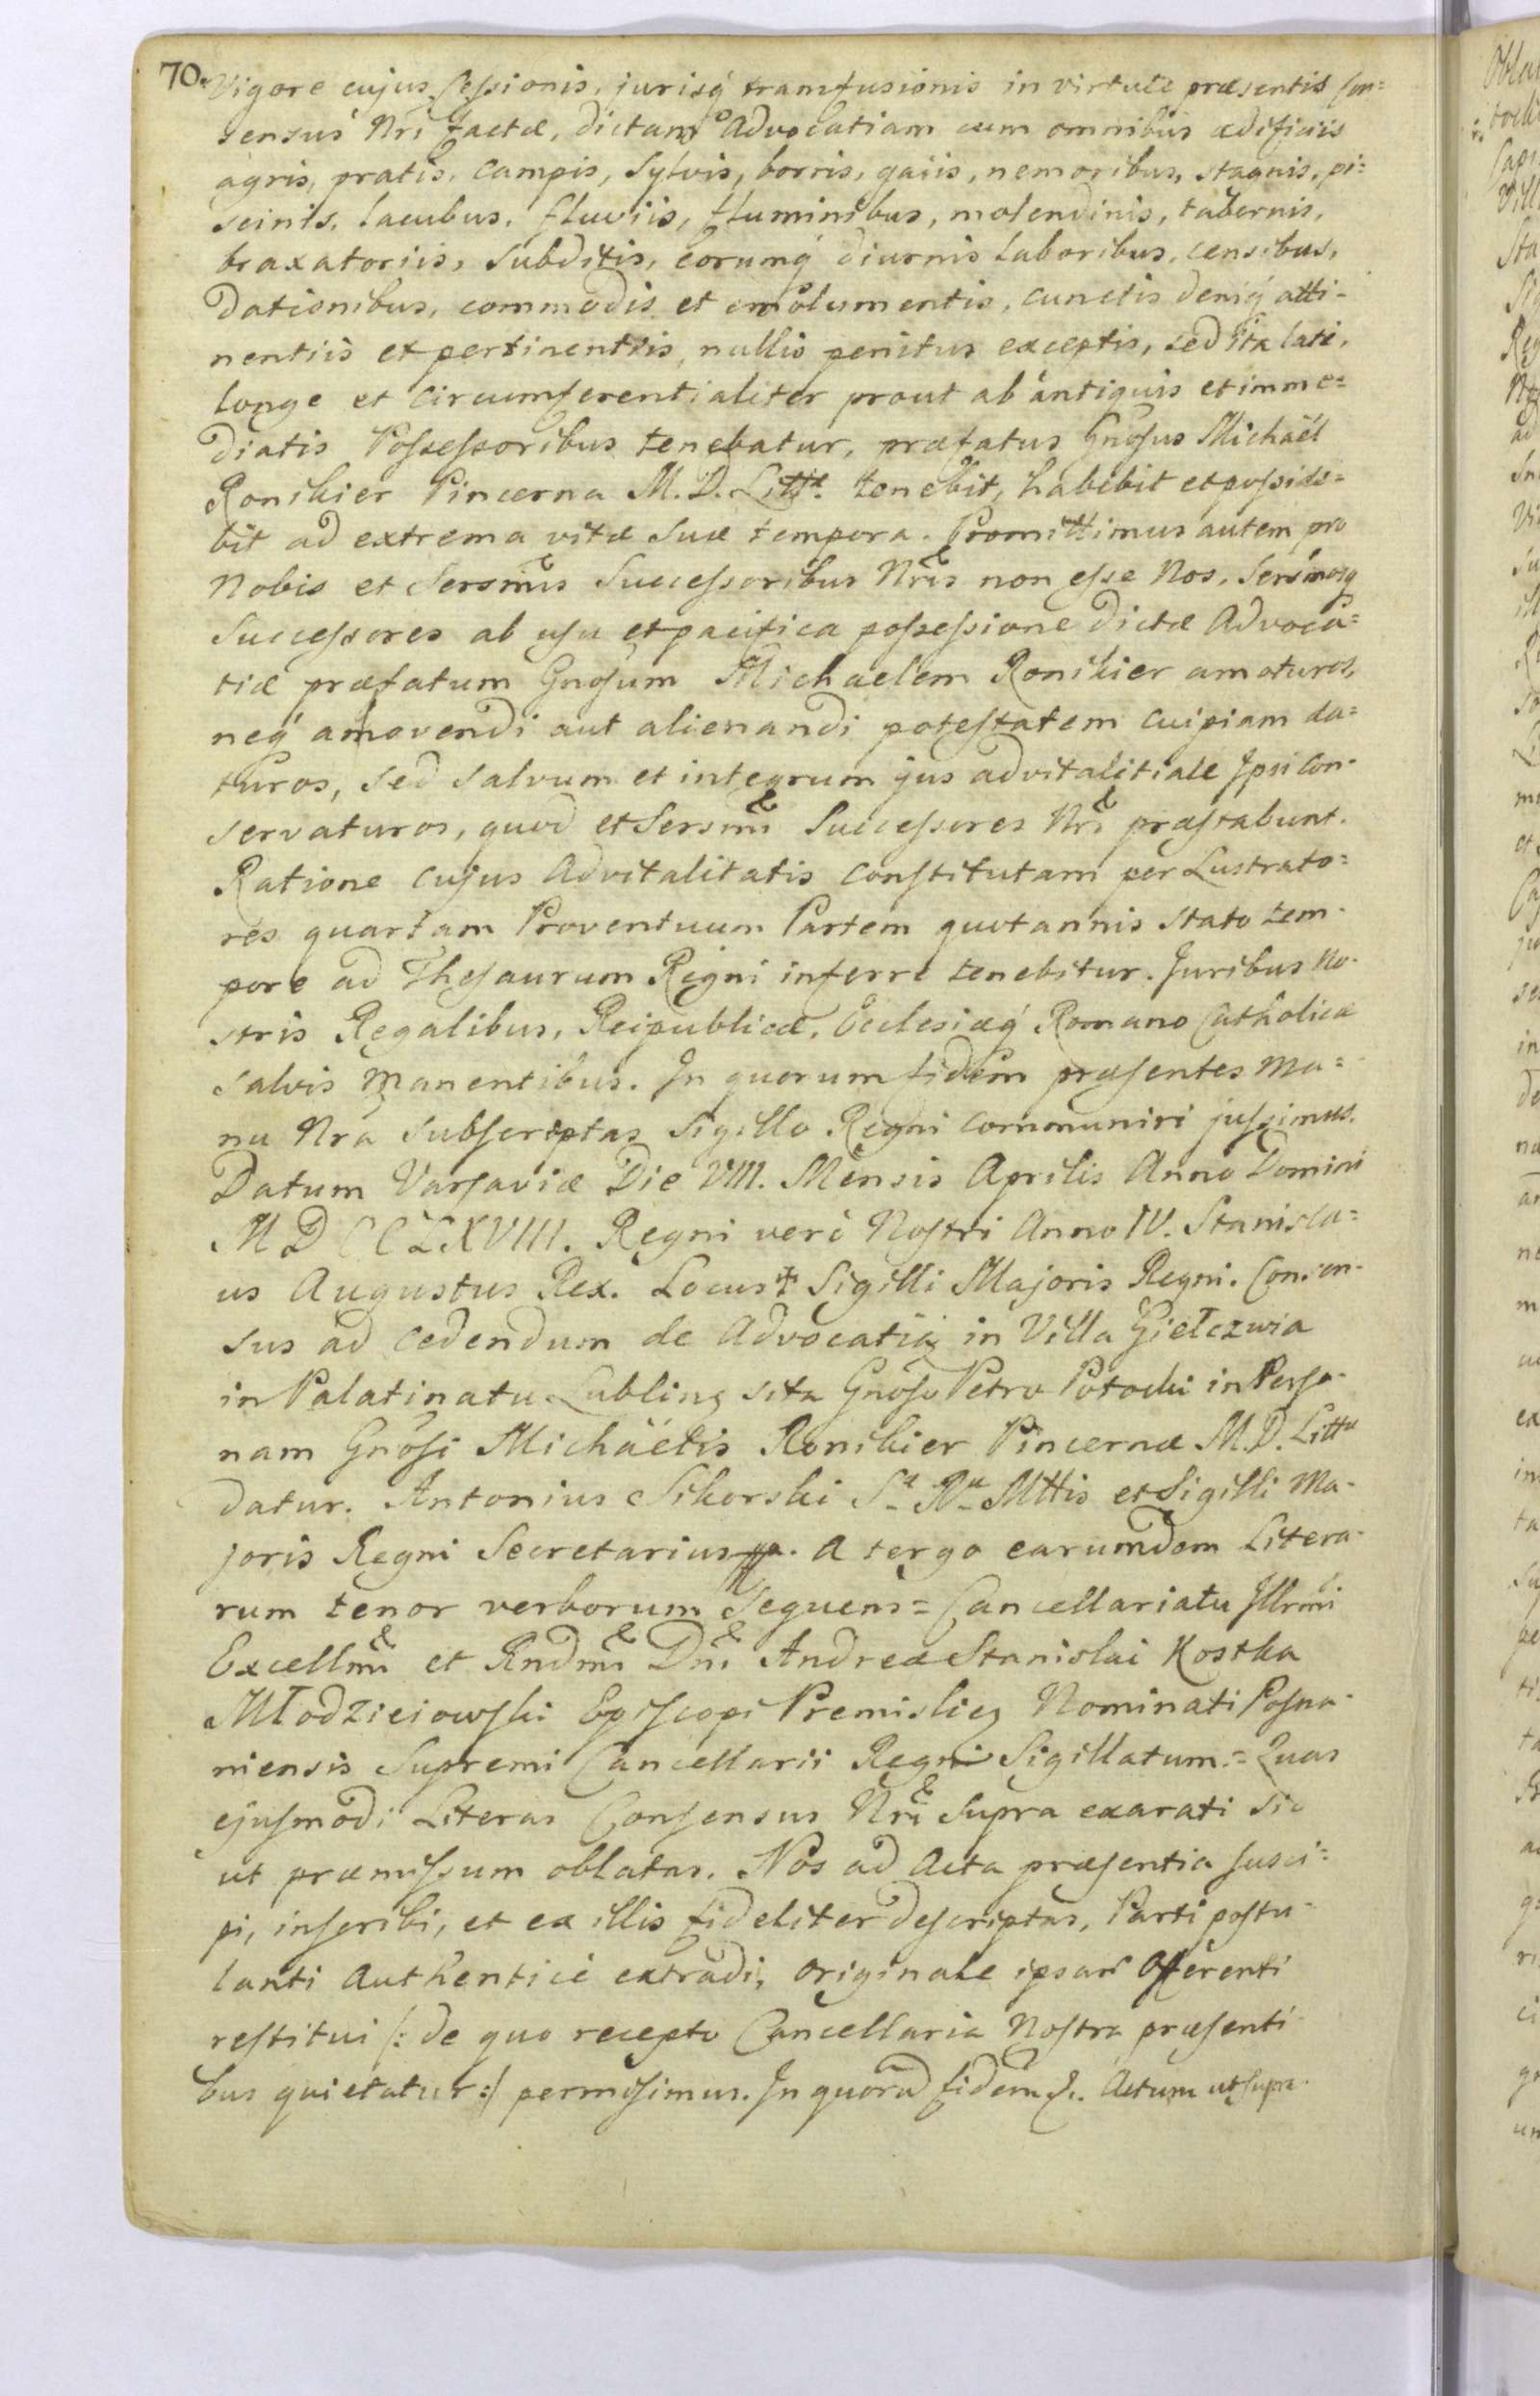 70. Vigore cujus Cessionis, jurisq́ transfusionis in virtute præsentis Con=
sensus Nrĩ factæ, dictam Advocatiam cum omnibus ædificiis
agris, pratis, campis, Sylvis, borris, gaiis, nemoribus, stagnis, pi=
scinis, lacubus, fluviis, fluminibus, molendinis, tabernis,
braxatoriis, Subditis, eorumq́ diurnis laboribus, censibus,
Dationibus, commodis et emolumentis, cunctis deniq́ atti-
nentiis et pertinentiis, nullis penitus exceptis, sed ita late,
longe et circumferentialiter prout ab antiquis et imme=
diatis Possessoribus tenebatur, præfatus Gnosus Michaël
Ronikier Pincerna M. D. Littæ. tenebit, habebit et posside=
bit ad extrema vitæ suæ tempora. Promittimus autem pro
Nobis et Sersmis Successoribus Nris non esse Nos, Sersmosq́
Successores ab usu et pacifica possessione dictæ Advoca=
tiæ præfatum Gnosum Michaelem Ronikier amoturos,
neq́ amovendi aut alienandi potestatem cuipiam da=
turos, sed salvum et integrum jus advitalitiale Ipsi con-
servaturos, quod et Sersmi Successores Nri præstabunt.
Ratione cujus Advitalitatis constitutam per Lustrato=
res quartam Proventuum Partem quotannis stato tem-
pore ad Thesaurum Regni inferre tenebitur. Juribus No-
stris Regalibus, Reipublicæ, Ecclesiæq́ Romano Catholicæ
salvis manentibus. In quorum fidem præsentes Ma=
nu Nrã subscriptas Sigillo Regni communiri jussimus.
Datum Varsaviæ Die VIII. Mensis Aprilis Anno Domini
MDCCLXVIII. Regni verò Nostri Anno IV. Stanisla=
us Augustus Rex. Locus ✝ Sigilli Majoris Regni. Consen-
sus ad cedendum de Advocatia in Villa Giełczwia
in Palatinatu Lublinę sita Gnoso Petro Potocki in Perso-
nam Gnosi Michäelis Ronikier Pincernæ M. D. Littæ
datur. Antonius Sikorski Sæ Ræ Mttis et Sigilli Ma-
joris Regni Secretarius. A tergo earumdem Litera-
rum tenor verborum Sequens = Cancellariatu Illrmi
Excellmi et Rndmi Dni Andreæ Stanislai Kostka
Młodzieiowski Episcopi Premislieę Nominati Posna-
niensis Supremi Cancellarii Regni Sigillatum = Quas
ejusmodi Literas Consensus Nri supra exarati sic
ut præmissum oblatas. Nos ad Acta præsentia susci=
pi, inscribi, et ex illis fideliter descriptas, Parti postu-
lanti Authenticè extradi, originale ipsum Offerenti
restitui /: de quo recepto Cancellaria Nostra præsenti-
bus quietatur :/ permisimus. In quorũ fidem &. Actum ut supra.